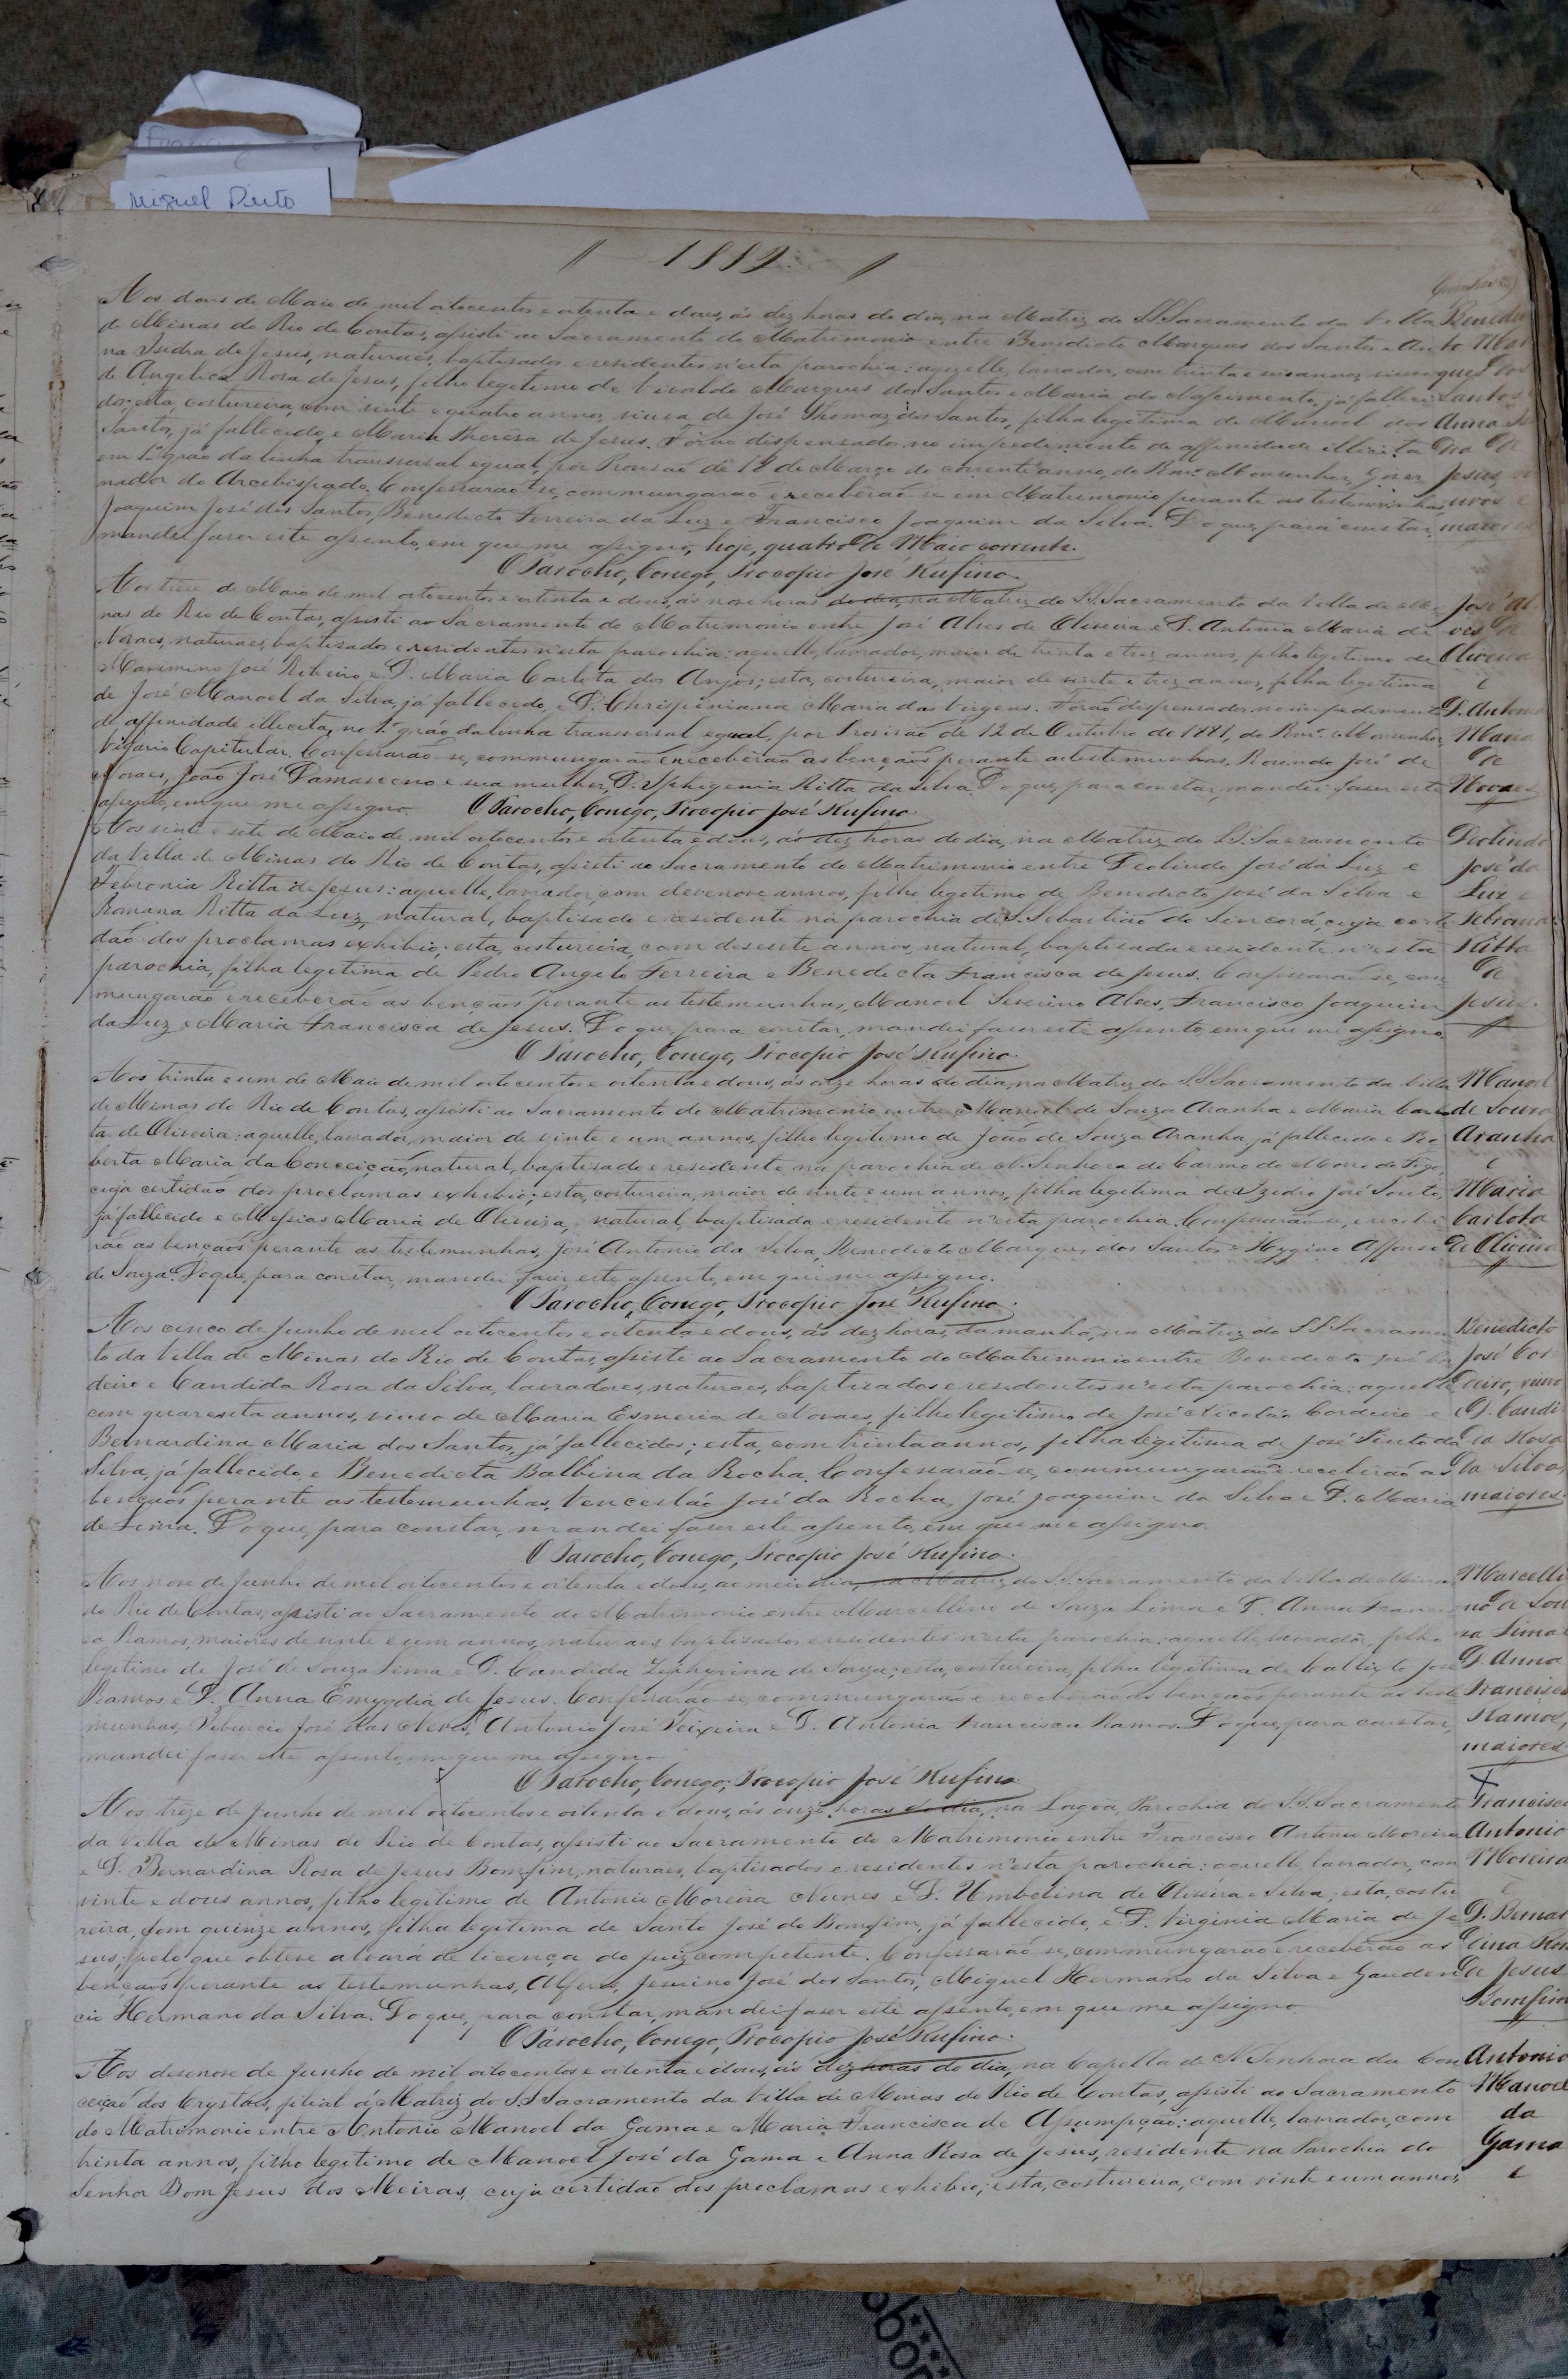 Miguel Pinto
1882
Aos dous de Maio de mil oitocentos e oitenta e dous, ás dez horas do dia, na Matriz do S.S. Sacramento da Villa
de Minas do Rio de Contas, assisti ao Sacramento do Matrimonio entre Benedicto Marques dos Santos e An
na Isidra de Jesus, naturaes, baptisados e residentes n'esta parochia: aquelle, lavrador, com trinta e seis annos, viuvo
de Angelica Rosa de Jesus, filho legitimo de Vivaldo Marques dos Santos e Maria do Nascimento, já falleci
dos; esta, costureira, com vinte e quatro annos, viuva de José Thomaz dos Santos, filha legitima de Manoel dos
Santos, já fallecido, e Maria Therêsa de Jesus. Forão dispensados no impedimento de affinidade illicita
em 1º gráo da linha transversal egual, por Provisão de 12 de Março do corrente anno, do Rmº Monsenhor Gover
nador do Arcebispado. Confessarão-se, commungarão e receberão-se em Matrimonio perante as testemunhas,
Joaquim José dos Santos, Benedicto Ferreira da Luz e Francisco Joaquim da Silva. Do que, para constar,
mandei faser este assento, em que me assigno, hoje, quatro de Maio corrente.
O Parocho, Conego, Procopio José Rufino.
Benedic
Santos
Anna
Jesus
Aos treze de Maio de mil oitocentos e oitenta e dous, ás nove horas do dia, na Matriz do S.S. Sacramento da Villa de Mi
nas do Rio de Contas, assisti ao Sacramento do Matrimonio entre José Alves de Oliveira e D. Antonia Maria de
Novaes, naturaes, baptisados e residentes n'esta parochia: aquelle, lavrador, maior de trinta e tres annos, filho legitimo de
Maximino José Ribeiro e D. Maria Carlota dos Anjos; esta, costureira, maior de vinte e tres annos, filha legitima
de José Manoel da Silva, já fallecido, e D. Chrispiniana Maria das Virgens. Forão dispensados no impedimento
de affinidade illicita, no 1º gráo da linha transversal egual, por Provisão de 12 de Outubro de 1881, do Rmº Monsenhor
Vigario Capitular. Confessarão-se, commungarão e receberão as bençãos perante as testemunhas, Rosendo José de
Novaes, João José Damasceno e sua mulher, D. Iphigenia Ritta da Silva. Do que, para constar, mandei faser este
assento, em que me assigno. O Parocho, Conego, Procopio José Rufino.
José Al
ves de
Oliveira
e
D. Antonia
Maria
de
Novaes
Aos vinte e sete de Maio de mil oitocentos e oitenta e dous, ás dez horas do dia, na Matriz do S.S. Sacramento
da Villa de Minas do Rio de Contas, assisti ao Sacramento do Matrimonio entre Deolindo José da Luz e
Febronia Ritta de Jesus: aquelle, lavrador, com desenove annos, filho legitimo de Benedicto José da Silva e
Romana Ritta da Luz, natural, baptisado e residente na parochia de S. Sebastião do Sincorá, cuja certi
dão dos proclamas exhibio; esta, costureira, com desesete annos, natural, baptisada e residente n'esta
parochia, filha legitima de Pedro Angelo Ferreira e Benedicta Francisca de Jesus. Confessarão-se, com
mungarão e receberão as bençãos perante as testemunhas, Manoel Severino Alves, Francisco Joaquim
da Luz e Maria Francisca de Jesus. Do que, para constar, mandei faser este assento, em que me assigno.
O Parocho, Conego, Procopio José Rufino.
Deolindo
José da
Luz e
Febronia
Ritta
de
Jesus.
Aos trinta e um de Maio de mil oitocentos e oitenta e dous, ás onze horas do dia, na Matriz do S.S. Sacramento da Villa
de Minas do Rio de Contas, assisti ao Sacramento do Matrimonio entre Manoel de Souza Aranha e Maria Carlo
ta de Oliveira: aquelle, lavrador, maior de vinte e um annos, filho legitimo de João de Souza Aranha, já fallecido e Ro
berta Maria da Conceição, natural, baptisado e residente na parochia de N. Senhora do Carmo do Morro do Fogo,
cuja certidão dos proclamas exhibio; esta, costureira, maior de vinte e um annos, filha legitima de Izidro José Souto,
já fallecido e Messias Maria de Oliveira, natural, baptisada e residente n'esta parochia. Confessarão-se, e recebe
rão as bençãos perante as testemunhas, José Antonio da Silva, Benedicto Marques dos Santos e Hygino Affonso
de Souza. Do que, para constar, mandei faser este assento, em que me assigno.
O Parocho, Conego, Procopio José Rufino.
Manoel
de Souza
Aranha
e
Maria
Carlota
de Oliveira
Aos cinco de Junho de mil oitocentos e oitenta e dous, ás dez horas da manhã, na Matriz do S.S. Sacramen
to da Villa de Minas do Rio de Contas, assisti ao Sacramento do Matrimonio entre Benedicto José Cor
deiro e Candida Rosa da Silva, lavradores, naturaes, baptizados e residentes n'esta parochia: aquelle
com quarenta annos, viuvo de Maria Esmeria de Novaes, filho legitimo de José Nicoláo Cordeiro e
Bernardina Maria dos Santos, já fallecidos; esta, com trinta annos, filha legitima de José Pinto da
Silva, já fallecido, e Benedicta Balbina da Rocha. Confessarão-se, commungarão e receberão as
bençãos perante as testemunhas, Venceslão José da Rocha, José Joaquim da Silva e D. Maria
de Lima. Do que, para constar, mandei faser este assento, em que me assigno.
O Parocho, Conego, Procopio José Rufino.
Benedicto
José Cor
deiro, viuvo
e D. Candi
da Rosa
da Silva,
maiores.
Aos nove de Junho de mil oitocentos e oitenta e dous, ao meio dia, na Matriz do S.S. Sacramento da Villa de Minas
do Rio de Contas, assisti ao Sacramento do Matrimonio entre Marcellino de Souza Lima e D. Anna Francis
ca Ramos, maiores de vinte e um annos, naturaes, baptisados e residentes n'esta parochia: aquelle, lavrador, filho
legitimo de José de Souza Lima e D. Candida Zephyrina de Souza; esta, costureira, filha legitima de Callixto José
Ramos e D. Anna Emygdia de Jesus. Confessarão-se, commungarão e receberão as bençãos perante as teste
munhas, Tiburcio José das Neves, Antonio José Teixeira e D. Antonia Francisca Ramos. Do que, para constar,
mandei faser este assento, em que me assigno.
O Parocho, Conego, Procopio José Rufino
Marcelli
no de Sou
za Lima e
D. Anna
Francisca
Ramos,
maiores.
Aos treze de Junho de mil oitocentos e oitenta e dous, ás onze horas do dia, na Lagôa, Parochia do S.S. Sacramento
da Villa de Minas do Rio de Contas, assisti ao Sacramento do Matrimonio entre Francisco Antonio Moreira
e D. Bernardina Rosa de Jesus Bomfim, naturaes, baptisados e residentes n'esta parochia: aquelle, lavrador, com
vinte e dous annos, filho legitimo de Antonio Moreira Nunes e D. Umbelina de Oliveira e Silva; esta, costu
reira, com quinze annos, filha legitima de Santo José do Bomfim, já fallecido, e D. Virginia Maria de Je
sus; pelo que obteve alvará de licença do juiz competente. Confessarão-se, commungarão e receberão as
bençãos perante as testemunhas, Alferes, Jesuino José dos Santos, Miguel Hermano da Silva e Gauden
cio Hermano da Silva. Do que, para constar, mandei faser este assento, em que me assigno.
O Parocho, Conego, Procopio José Rufino.
Francisco
Antonio
Moreira
e
D. Bernar
dina Rosa
de Jesus
Bomfim
Aos desenove de Junho de mil oitocentos e oitenta e dous, ás dez horas do dia, na Capella de N. Senhora da Con
ceição dos Crystaes, filial á Matriz do S.S. Sacramento da Villa de Minas do Rio de Contas, assisti ao Sacramento
do Matrimonio entre Antonio Manoel da Gama e Maria Francisca de Assumpção: aquelle, lavrador, com
trinta annos, filho legitimo de Manoel José da Gama e Anna Rosa de Jesus, residente na Parochia do
Senhor Bom Jesus dos Meiras, cuja certidão dos proclamas exhibio; esta, costureira, com vinte e um annos,
Antonio
Manoel
da
Gama
e